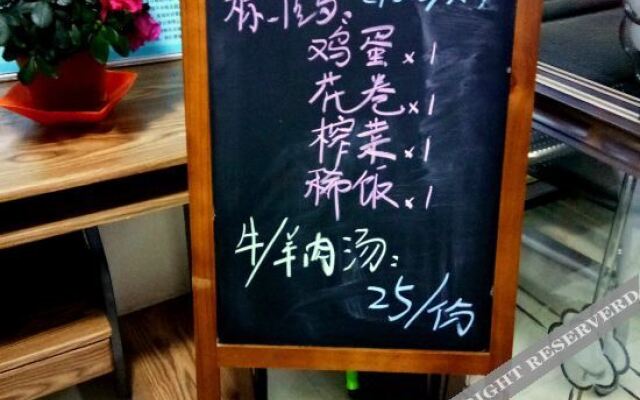 鸡蛋×1
花卷×1
榨菜×1
稀饭×1
牛/羊肉汤:
25/份
RIGHT RESERVERD